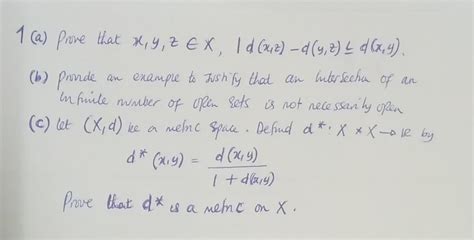 1 (a) Prove that x, y, z ∈ X, |d(x,z) - d(y,z) ≤ d(x,y).
(b) provide an example to Justify that an Intersection of an
Infinite number of open sets is not necessarily open
(c) let (X,d) be a metric space. Defind d* : X * X → R by
d*(x,y) = d(x,y) / 1 + d(x,y)
Prove that d* is a metric on X.